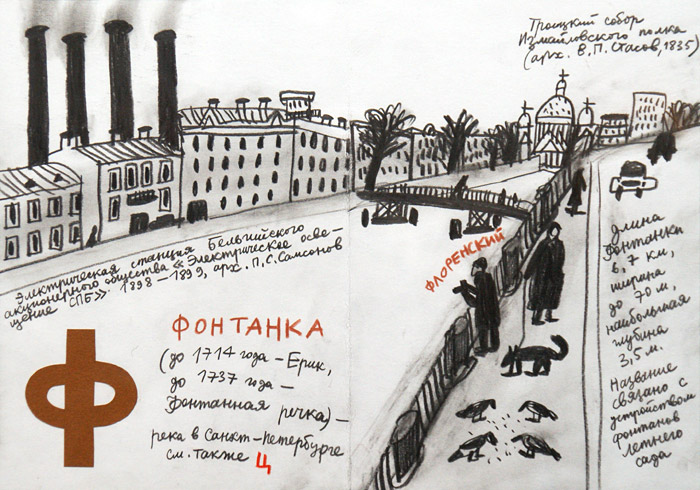 Троицкий собор
Измайловского полка
(арх. В.П. Стасов, 1835)
Электрическая станция Бельгийского
акционерного общества «Электрическое осве-
щение СПБ». 1898–1899, арх. П.С. Самсонов
ФЛОРЕНСКИЙ
ФОНТАНКА
(до 1714 года – Ерик,
до 1737 года –
Фонтанная речка) –
река в Санкт-Петербурге
см. также Ц
Ф
длина
Фонтанки
6,7 км,
ширина
до 70 м,
наибольшая
глубина
3,5 м.
Название
связано с
устройством
фонтанов
Летнего
сада